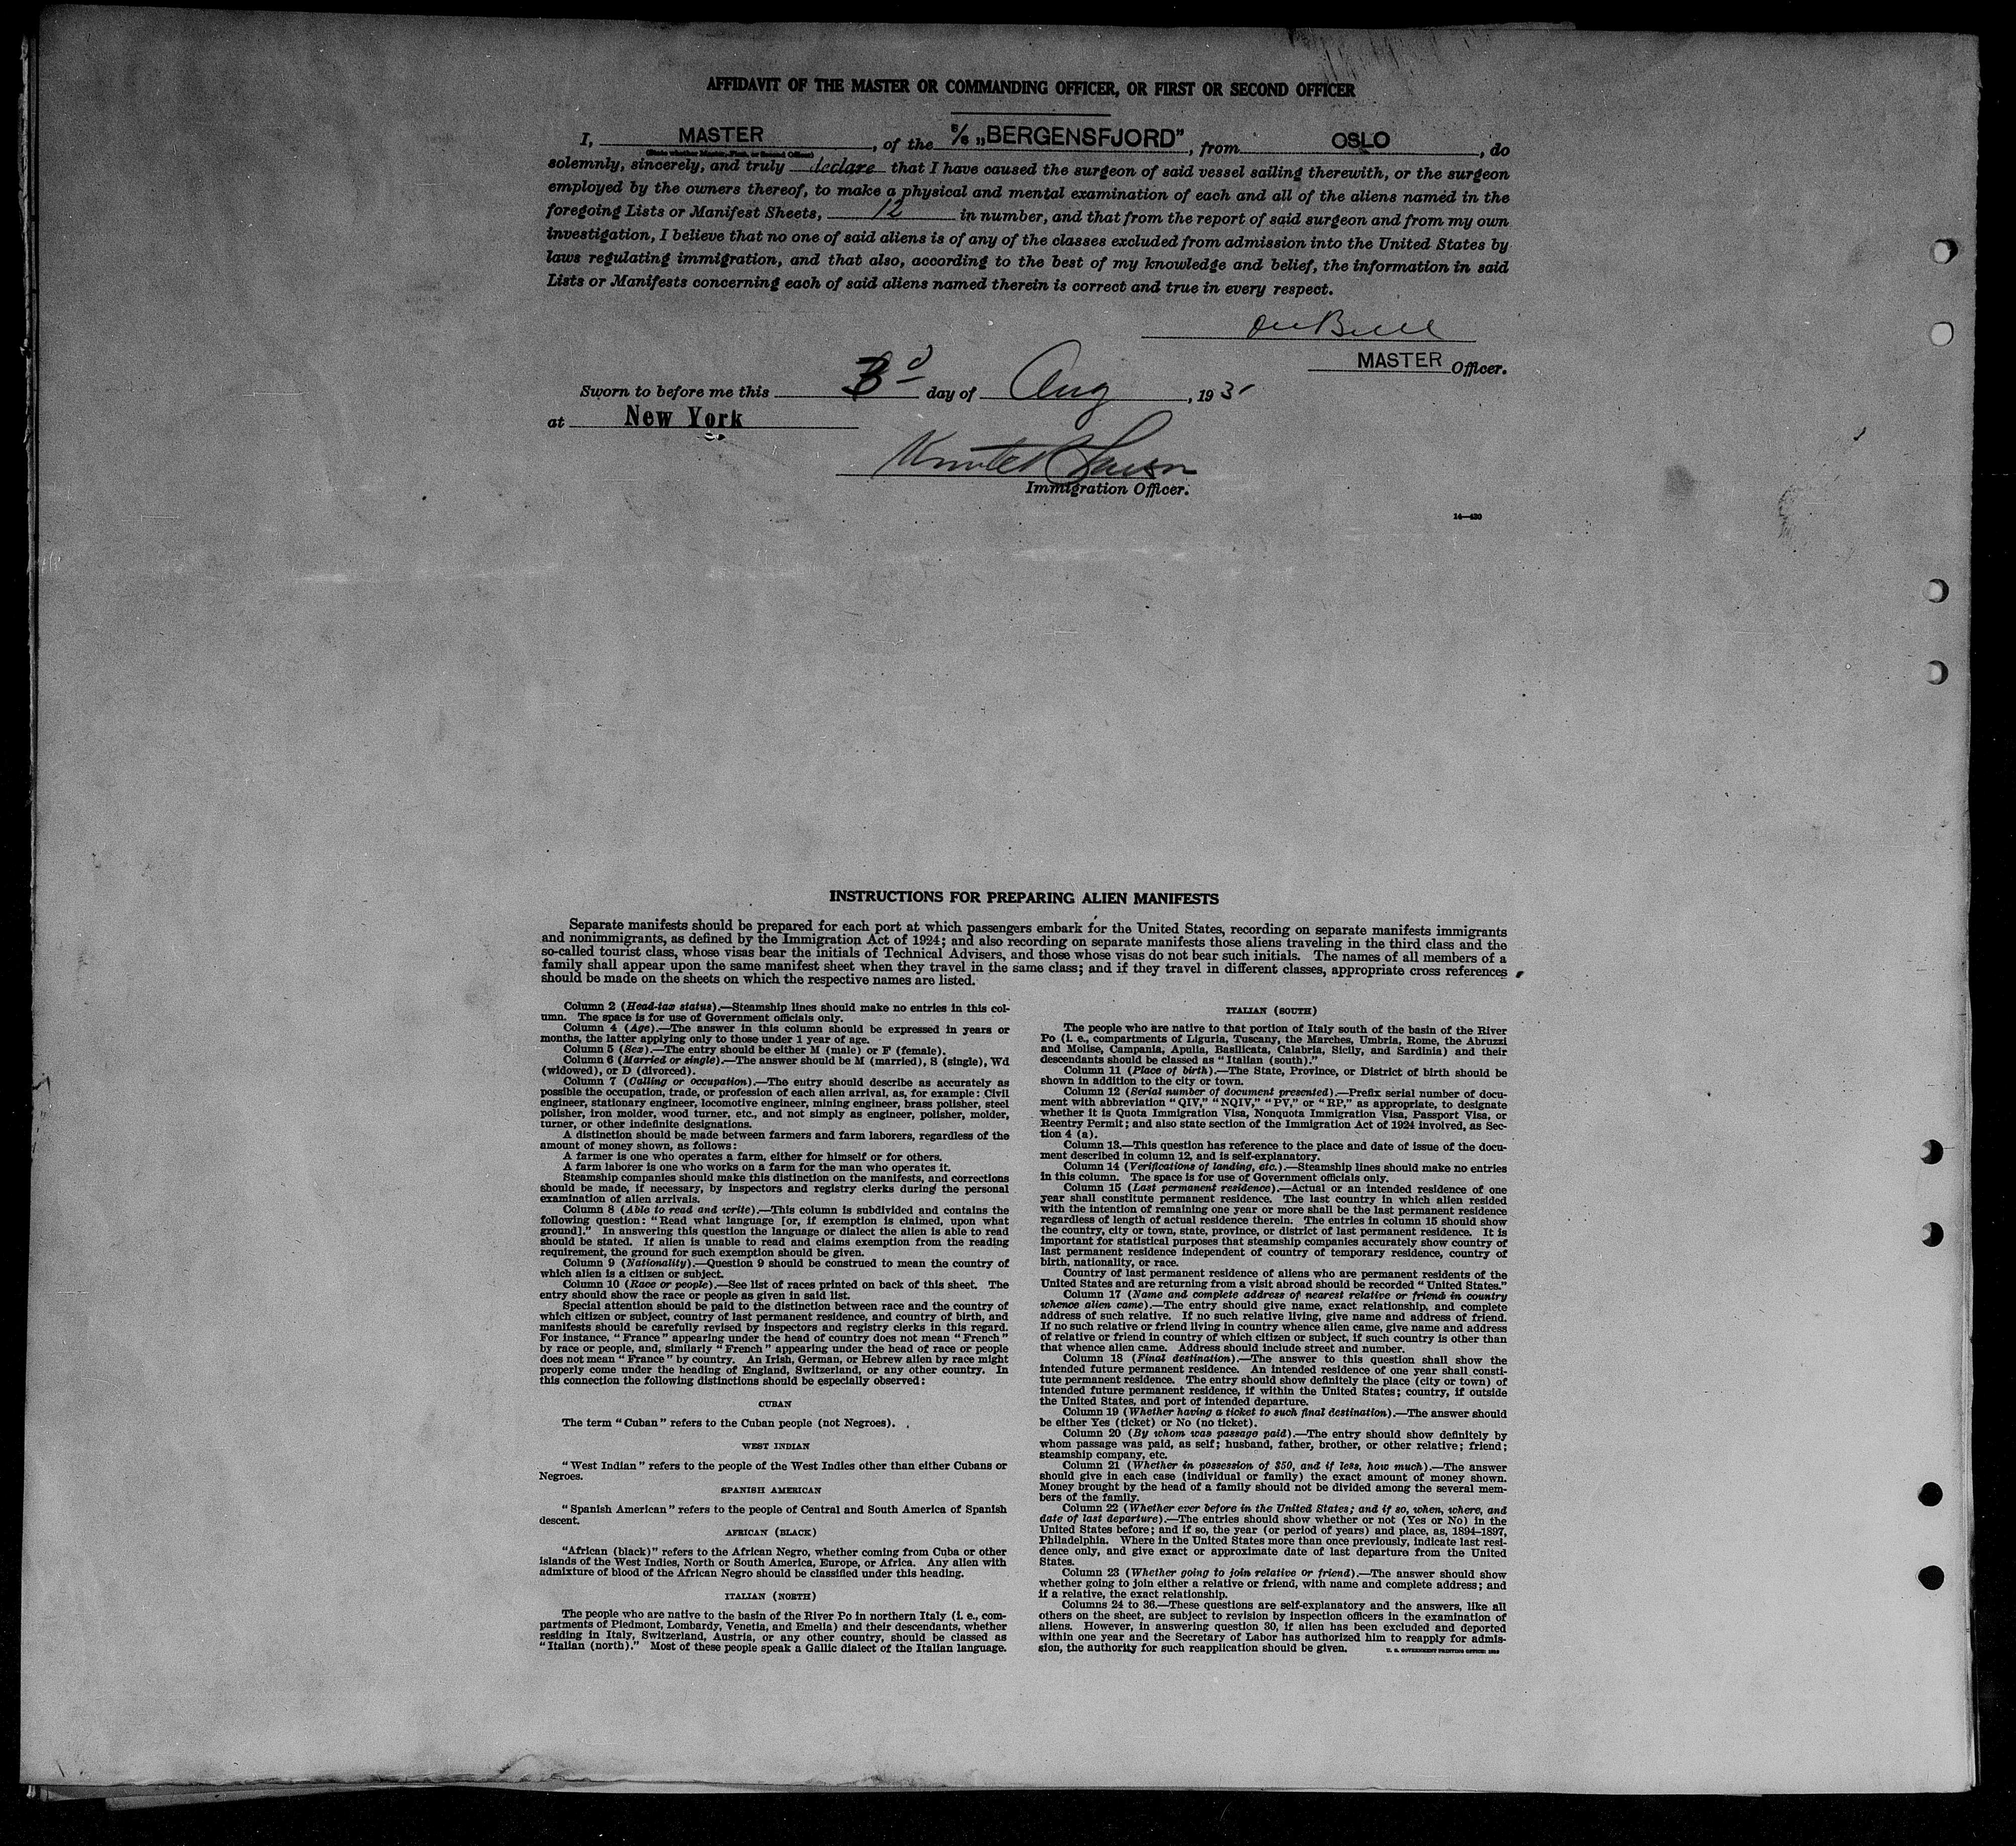 AFFIDAVIT OF THE MASTER OR COMMANDING OFFICER, OR FIRST OR SECOND OFFICER
I, MASTER, of the S/S „BERGENSFJORD”, from OSLO, do
(State whether Master, First, or Second Officer)
solemnly, sincerely, and truly declare that I have caused the surgeon of said vessel sailing therewith, or the surgeon
employed by the owners thereof, to make a physical and mental examination of each and all of the aliens named in the
foregoing Lists or Manifest Sheets, 12 in number, and that from the report of said surgeon and from my own
investigation, I believe that no one of said aliens is of any of the classes excluded from admission into the United States by
laws regulating immigration, and that also, according to the best of my knowledge and belief, the information in said
Lists or Manifests concerning each of said aliens named therein is correct and true in every respect.
MASTER Officer.
Sworn to before me this 3d day of Aug, 193
at New York
Immigration Officer.
14—430
INSTRUCTIONS FOR PREPARING ALIEN MANIFESTS
Separate manifests should be prepared for each port at which passengers embark for the United States, recording on separate manifests immigrants
and nonimmigrants, as defined by the Immigration Act of 1924; and also recording on separate manifests those aliens traveling in the third class and the
so-called tourist class, whose visas bear the initials of Technical Advisers, and those whose visas do not bear such initials. The names of all members of a
family shall appear upon the same manifest sheet when they travel in the same class; and if they travel in different classes, appropriate cross references
should be made on the sheets on which the respective names are listed.
Column 2 (Head-tax status).—Steamship lines should make no entries in this col-
umn. The space is for use of Government officials only.
Column 4 (Age).—The answer in this column should be expressed in years or
months, the latter applying only to those under 1 year of age.
Column 5 (Sex).—The entry should be either M (male) or F (female).
Column 6 (Married or single).—The answer should be M (married), S (single), Wd
(widowed), or D (divorced).
Column 7 (Calling or occupation).—The entry should describe as accurately as
possible the occupation, trade, or profession of each alien arrival, as, for example: Civil
engineer, stationary engineer, locomotive engineer, mining engineer, brass polisher, steel
polisher, iron molder, wood turner, etc., and not simply as engineer, polisher, molder,
turner, or other indefinite designations.
A distinction should be made between farmers and farm laborers, regardless of the
amount of money shown, as follows:
A farmer is one who operates a farm, either for himself or for others.
A farm laborer is one who works on a farm for the man who operates it.
Steamship companies should make this distinction on the manifests, and corrections
should be made, if necessary, by inspectors and registry clerks during the personal
examination of alien arrivals.
Column 8 (Able to read and write).—This column is subdivided and contains the
following question: “Read what language [or, if exemption is claimed, upon what
ground].” In answering this question the language or dialect the alien is able to read
should be stated. If alien is unable to read and claims exemption from the reading
requirement, the ground for such exemption should be given.
Column 9 (Nationality).—Question 9 should be construed to mean the country of
which alien is a citizen or subject.
Column 10 (Race or people).—See list of races printed on back of this sheet. The
entry should show the race or people as given in said list.
Special attention should be paid to the distinction between race and the country of
which citizen or subject, country of last permanent residence, and country of birth, and
manifests should be carefully revised by inspectors and registry clerks in this regard.
For instance, “France” appearing under the head of country does not mean “French”
by race or people, and, similarly “French” appearing under the head of race or people
does not mean “France” by country. An Irish, German, or Hebrew alien by race might
properly come under the heading of England, Switzerland, or any other country. In
this connection the following distinctions should be especially observed:
CUBAN
The term “Cuban” refers to the Cuban people (not Negroes).
WEST INDIAN
“West Indian” refers to the people of the West Indies other than either Cubans or
Negroes.
SPANISH AMERICAN
“Spanish American” refers to the people of Central and South America of Spanish
descent.
AFRICAN (BLACK)
“African (black)” refers to the African Negro, whether coming from Cuba or other
islands of the West Indies, North or South America, Europe, or Africa. Any alien with
admixture of blood of the African Negro should be classified under this heading.
ITALIAN (NORTH)
The people who are native to the basin of the River Po in northern Italy (i. e., com-
partments of Piedmont, Lombardy, Venetia, and Emelia) and their descendants, whether
residing in Italy, Switzerland, Austria, or any other country, should be classed as
“Italian (north).” Most of these people speak a Gallic dialect of the Italian language.
ITALIAN (SOUTH)
The people who are native to that portion of Italy south of the basin of the River
Po (i. e., compartments of Liguria, Tuscany, the Marches, Umbria, Rome, the Abruzzi
and Molise, Campania, Apulia, Basilicata, Calabria, Sicily, and Sardinia) and their
descendants should be classed as “Italian (south).”
Column 11 (Place of birth).—The State, Province, or District of birth should be
shown in addition to the city or town.
Column 12 (Serial number of document presented).—Prefix serial number of docu-
ment with abbreviation “QIV,” “NQIV,” “PV,” or “RP,” as appropriate, to designate
whether it is Quota Immigration Visa, Nonquota Immigration Visa, Passport Visa, or
Reentry Permit; and also state section of the Immigration Act of 1924 involved, as Sec-
tion 4 (a).
Column 13.—This question has reference to the place and date of issue of the docu-
ment described in column 12, and is self-explanatory.
Column 14 (Verifications of landing, etc.).—Steamship lines should make no entries
in this column. The space is for use of Government officials only.
Column 15 (Last permanent residence).—Actual or an intended residence of one
year shall constitute permanent residence. The last country in which alien resided
with the intention of remaining one year or more shall be the last permanent residence
regardless of length of actual residence therein. The entries in column 15 should show
the country, city or town, state, province, or district of last permanent residence. It is
important for statistical purposes that steamship companies accurately show country of
last permanent residence independent of country of temporary residence, country of
birth, nationality, or race.
Country of last permanent residence of aliens who are permanent residents of the
United States and are returning from a visit abroad should be recorded “United States.”
Column 17 (Name and complete address of nearest relative or friend in country
whence alien came).—The entry should give name, exact relationship, and complete
address of such relative. If no such relative living, give name and address of friend.
If no such relative or friend living in country whence alien came, give name and address
of relative or friend in country of which citizen or subject, if such country is other than
that whence alien came. Address should include street and number.
Column 18 (Final destination).—The answer to this question shall show the
intended future permanent residence. An intended residence of one year shall consti-
tute permanent residence. The entry should show definitely the place (city or town) of
intended future permanent residence, if within the United States; country, if outside
the United States, and port of intended departure.
Column 19 (Whether having a ticket to such final destination).—The answer should
be either Yes (ticket) or No (no ticket).
Column 20 (By whom was passage paid).—The entry should show definitely by
whom passage was paid, as self; husband, father, brother, or other relative; friend;
steamship company, etc.
Column 21 (Whether in possession of $50, and if less, how much).—The answer
should give in each case (individual or family) the exact amount of money shown.
Money brought by the head of a family should not be divided among the several mem-
bers of the family.
Column 22 (Whether ever before in the United States; and if so, when, where, and
date of last departure).—The entries should show whether or not (Yes or No) in the
United States before; and if so, the year (or period of years) and place, as, 1894–1897,
Philadelphia. Where in the United States more than once previously, indicate last resi-
dence only, and give exact or approximate date of last departure from the United
States.
Column 23 (Whether going to join relative or friend).—The answer should show
whether going to join either a relative or friend, with name and complete address; and
if a relative, the exact relationship.
Columns 24 to 36.—These questions are self-explanatory and the answers, like all
others on the sheet, are subject to revision by inspection officers in the examination of
aliens. However, in answering question 30, if alien has been excluded and deported
within one year and the Secretary of Labor has authorized him to reapply for admis-
sion, the authority for such reapplication should be given.
U. S. GOVERNMENT PRINTING OFFICE